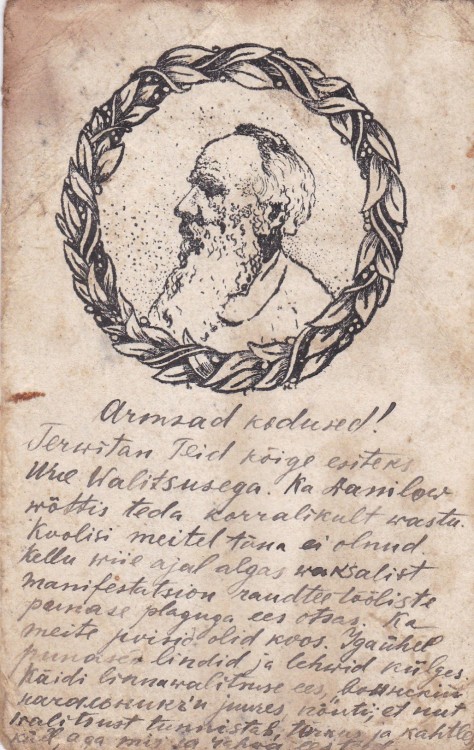 Armsad kodused!
Terwitan Teid kõige esiteks
Uue Walitsusega. Ka Danilow
wõttis teda korralikult wastu.
Koolisi meitel täna ei olnud.
Kellu wiie ajal algas waksalist
manifestatsion raudtee tööliste
punase plaguga ees otsas. Ka
meite poisid olid koos. Igaühel
punased lindid ja lehwid külges.
Käidi linnawalitsuse ees, воинский
начальник'u juures nõuti, et uut
walitsust tunnistab,
küll, aga